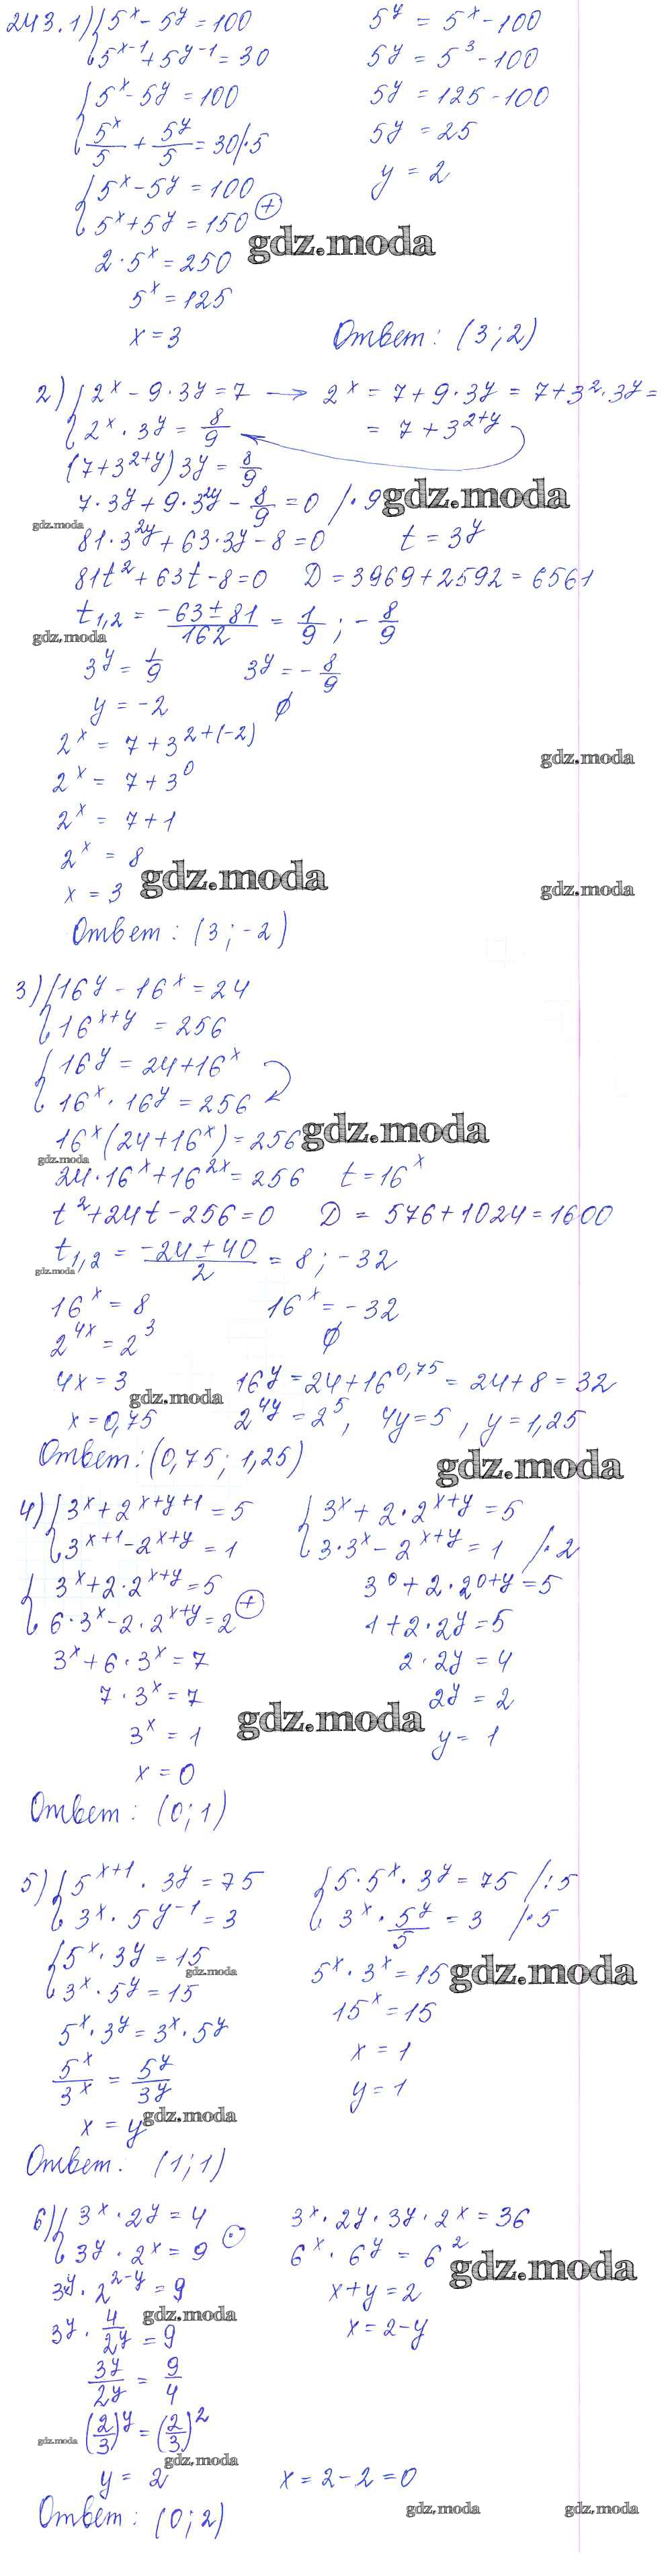 243. 1) { 5^x - 5^y = 100
5^(x-1) + 5^(y-1) = 30
{ 5^x - 5^y = 100
5^x/5 + 5^y/5 = 30 |·5
{ 5^x - 5^y = 100
5^x + 5^y = 150 (+)
gdz.moda
2 · 5^x = 250
5^x = 125
x = 3
5^y = 5^x - 100
5^y = 5^3 - 100
5^y = 125 - 100
5^y = 25
y = 2
Ответ: (3; 2)
2) { 2^x - 9·3^y = 7 → 2^x = 7 + 9·3^y = 7 + 3^2·3^y =
= 7 + 3^(2+y)
2^x · 3^y = 8/9
(7 + 3^(2+y)) 3^y = 8/9
7·3^y + 9·3^(2y) - 8/9 = 0 |·9
gdz.moda
gdz.moda
81·3^(2y) + 63·3^y - 8 = 0 t = 3^y
81t^2 + 63t - 8 = 0 D = 3969 + 2592 = 6561
t_1,2 = (-63 ± 81)/162 = 1/9 ; -8/9
gdz.moda
3^y = 1/9 3^y = -8/9
y = -2 ∅
2^x = 7 + 3^(2+(-2))
gdz.moda
2^x = 7 + 3^0
2^x = 7 + 1
2^x = 8
x = 3
gdz.moda
gdz.moda
Ответ: (3; -2)
3) { 16^y - 16^x = 24
16^(x+y) = 256
{ 16^y = 24 + 16^x
16^x · 16^y = 256
16^x (24 + 16^x) = 256
gdz.moda
gdz.moda
24·16^x + 16^(2x) = 256 t = 16^x
t^2 + 24t - 256 = 0 D = 576 + 1024 = 1600
t_1,2 = (-24 ± 40)/2 = 8 ; -32
gdz.moda
16^x = 8 16^x = -32
2^(4x) = 2^3 ∅
4x = 3 16^y = 24 + 16^(0,75) = 24 + 8 = 32
gdz.moda
x = 0,75 2^(4y) = 2^5, 4y = 5, y = 1,25
Ответ: (0,75; 1,25)
gdz.moda
4) { 3^x + 2^(x+y+1) = 5 { 3^x + 2·2^(x+y) = 5
3^(x+1) - 2^(x+y) = 1 3·3^x - 2^(x+y) = 1 |·2
{ 3^x + 2·2^(x+y) = 5 3^0 + 2·2^(0+y) = 5
6·3^x - 2·2^(x+y) = 2 (+) 1 + 2·2^y = 5
3^x + 6·3^x = 7 2·2^y = 4
7·3^x = 7 2^y = 2
gdz.moda
3^x = 1 y = 1
x = 0
Ответ: (0; 1)
5) { 5^(x+1) · 3^y = 75 { 5·5^x · 3^y = 75 |:5
3^x · 5^(y-1) = 3 3^x · 5^y/5 = 3 |·5
{ 5^x · 3^y = 15 5^x · 3^x = 15
gdz.moda
gdz.moda
3^x · 5^y = 15 15^x = 15
5^x · 3^y = 3^x · 5^y x = 1
5^x/3^x = 5^y/3^y y = 1
x = y
gdz.moda
Ответ: (1; 1)
6) { 3^x · 2^y = 4 3^x · 2^y · 3^y · 2^x = 36
3^y · 2^x = 9 (·) 6^x · 6^y = 6^2
gdz.moda
3^y · 2^(2-y) = 9 x + y = 2
gdz.moda
3^y · 4/2^y = 9 x = 2 - y
3^y/2^y = 9/4
(2/3)^y = (2/3)^2
gdz.moda
gdz.moda
y = 2 x = 2 - 2 = 0
Ответ: (0; 2)
gdz.moda
gdz.moda